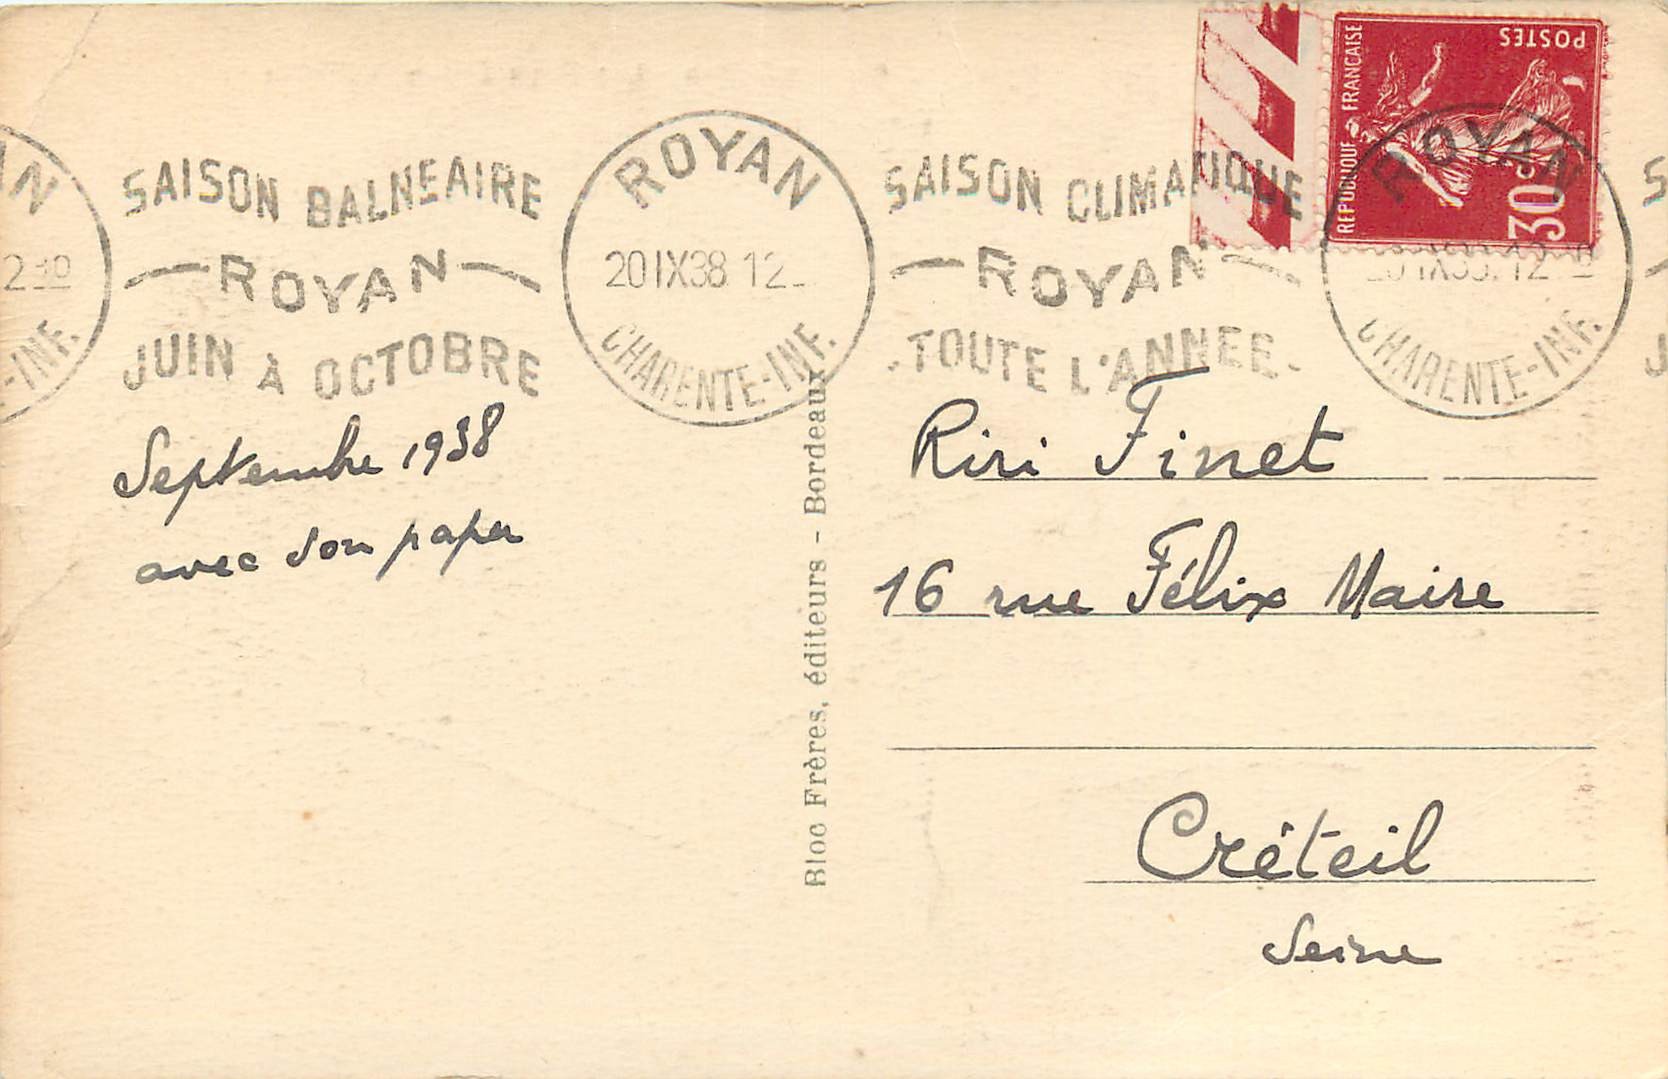 AN
2 30
-INF.
SAISON BALNEAIRE
ROYAN
JUIN À OCTOBRE
ROYAN
20 IX 38. 12
CHARENTE-INF.
SAISON CLIMATIQUE
ROYAN
TOUTE L'ANNEE
REPUBLIQUE FRANCAISE
POSTES
30c
ROYAN
CHARENTE-INF.
S
J
Septembre 1938
avec son papa
Bloc Frères, éditeurs - Bordeaux
Riri Finet
16 rue Félix Maire
Créteil
Seine